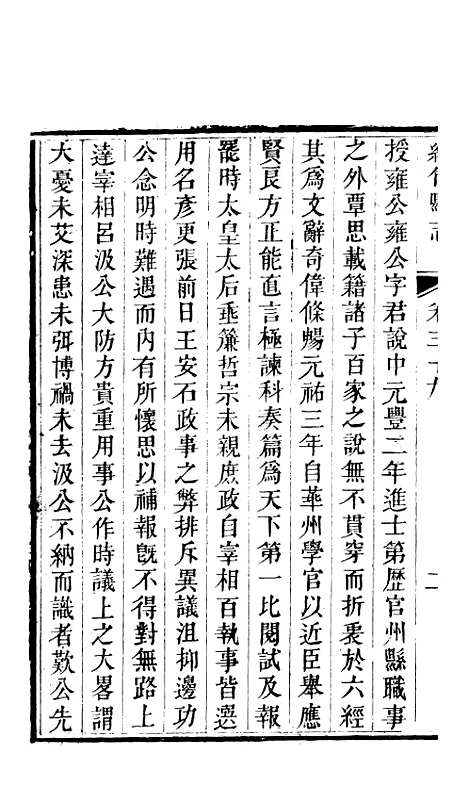 縣志　卷三十九　二
授雍公雍公字君說中元豐二年進士第歷官州縣職事
之外覃思載籍諸子百家之說無不貫穿而折衷於六經
其爲文辭奇偉條暢元祐三年自華州學官以近臣舉應
賢良方正能直言極諫科奏篇爲天下第一比閱試及報
罷時太皇太后垂簾哲宗未親庶政自宰相百執事皆選
用名彥更張前日王安石政事之弊排斥異議沮抑邊功
公念明時難遇而內有所懷思以補報旣不得對無路上
達宰相呂汲公大防方貴重用事公作時議上之大畧謂
大憂未艾深患未弭博禍未去汲公不納而識者歎公先